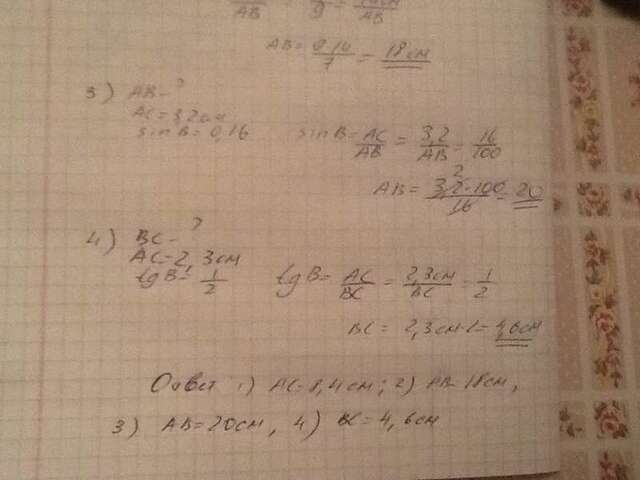 AB = 9·14/7 = 18см
3) AB - ?
AC = 3,2см
sin B = 0,16
sin B = AC/AB = 3,2/AB = 16/100
AB = 3,2·100/16 = 20
2
4) BC - ?
AC - 2,3см
tg B = 1/2
tg B = AC/BC = 2,3см/BC = 1/2
BC = 2,3см·2 = 4,6см
Ответ 1) AC = 8,4см; 2) AB = 18см,
3) AB = 20см, 4) BC = 4,6см